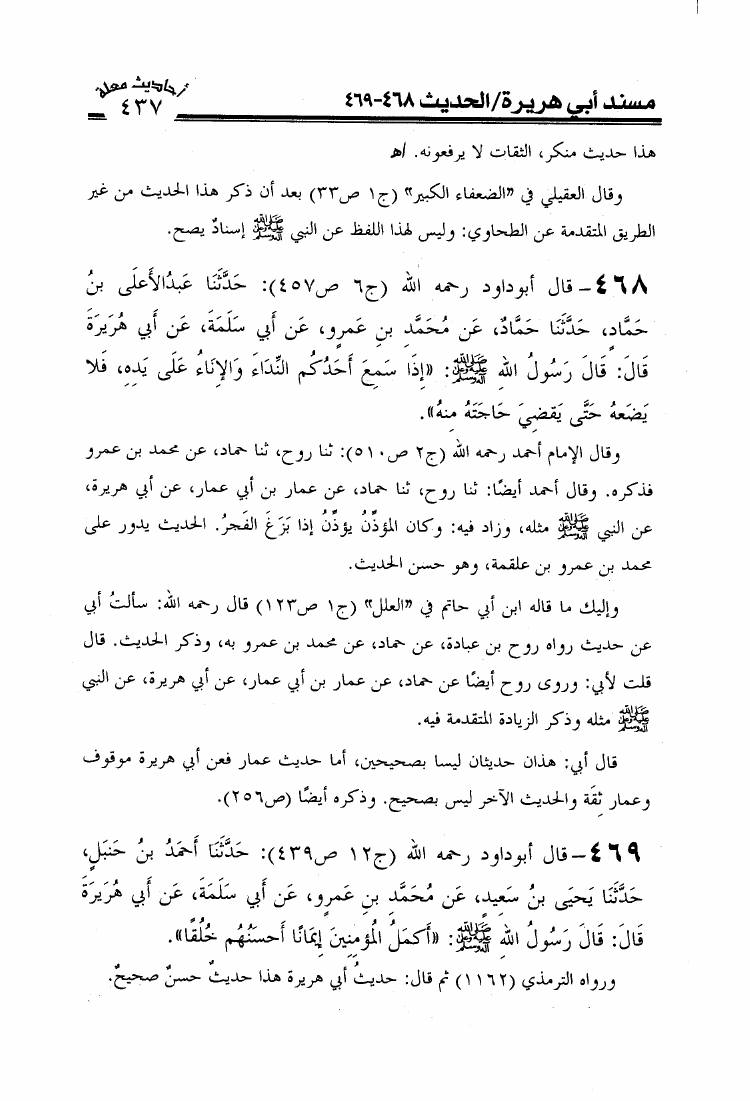 مسند أبي هريرة/الحديث ٤٦٨-٤٦٩
أحاديث معلة
٤٣٧
هذا حديث منكر، الثقات لا يرفعونه. اهـ
وقال العقيلي في «الضعفاء الكبير» (ج١ ص٣٣) بعد أن ذكر هذا الحديث من غير
الطريق المتقدمة عن الطحاوي: وليس لهذا اللفظ عن النبي ﷺ إسنادٌ يصح.
٤٦٨- قال أبوداود رحمه الله (ج٦ ص٤٥٧): حَدَّثَنَا عَبدُالأَعلَى بنُ
حَمَّادٍ، حَدَّثَنَا حَمَّادٌ، عَن مُحَمَّدِ بنِ عَمرٍو، عَن أَبي سَلَمَةَ، عَن أَبي هُرَيرَةَ
قَالَ: قَالَ رَسُولُ اللهِ ﷺ: «إِذَا سَمِعَ أَحَدُكُم النِّدَاءَ وَالإِنَاءُ عَلَى يَدِهِ، فَلا
يَضَعهُ حَتَّى يَقضِيَ حَاجَتَهُ مِنهُ».
وقال الإمام أحمد رحمه الله (ج٢ ص٥١٠): ثنا روح، ثنا حماد، عن محمد بن عمرو
فذكره. وقال أحمد أيضًا: ثنا روح، ثنا حماد، عن عمار بن أبي عمار، عن أبي هريرة،
عن النبي ﷺ مثله، وزاد فيه: وكان المؤذّنُ يؤذّنُ إذا بَزَغَ الفَجرُ. الحديث يدور على
محمد بن عمرو بن علقمة، وهو حسن الحديث.
وإليك ما قاله ابن أبي حاتم في «العلل» (ج١ ص١٢٣) قال رحمه الله: سألتُ أبي
عن حديث رواه روح بن عبادة، عن حماد، عن محمد بن عمرو به، وذكر الحديث. قال
قلت لأبي: وروى روح أيضًا عن حماد، عن عمار بن أبي عمار، عن أبي هريرة، عن النبي
ﷺ مثله وذكر الزيادة المتقدمة فيه.
قال أبي: هذان حديثان ليسا بصحيحين، أما حديث عمار فعن أبي هريرة موقوف
وعمار ثِقَة والحديث الآخر ليس بصحيح. وذكره أيضًا (ص٢٥٦).
٤٦٩- قال أبوداود رحمه الله (ج١٢ ص٤٣٩): حَدَّثَنَا أَحمَدُ بنُ حَنبَلٍ،
حَدَّثَنَا يَحيَى بنُ سَعِيدٍ، عَن مُحَمَّدِ بنِ عَمرٍو، عَن أَبي سَلَمَةَ، عَن أَبي هُرَيرَةَ
قَالَ: قَالَ رَسُولُ اللهِ ﷺ: «أَكمَلُ المُؤمِنِينَ إِيمَانًا أَحسَنُهُم خُلُقًا».
ورواه الترمذي (١١٦٢) ثم قال: حديثُ أبي هريرة هذا حديثٌ حسنٌ صحيحٌ.